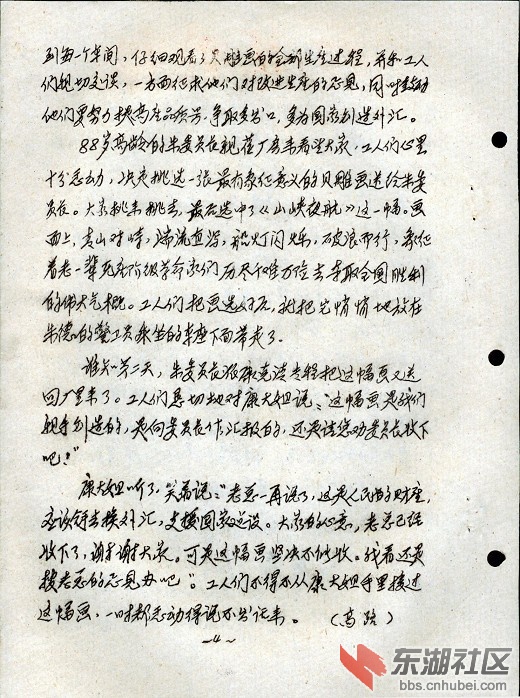 到每一个车间，仔细观看了贝雕画的全部生产过程，并和工人
们亲切交谈，一方面征求他们对改进生产的意见，同时鼓励
他们要努力提高产品质量，争取多出口，多为国家创造外汇。
88岁高龄的朱委员长亲莅厂房来看望大家，工人们心里
十分感动，决定挑选一张最有象征意义的贝雕画送给朱委
员长。大家挑来挑去，最后选中了《山峡夜航》这一幅。画
面上，青山对峙，湍流直泻，船灯闪烁，破浪而行，象征
着老一辈无产阶级革命家们历尽千难万险去夺取全国胜利
的伟大气概。工人们把画选好后，就把它悄悄地放在
朱德的警卫员乘坐的车座下面带走了。
谁知第二天，朱委员长派康克清专程把这幅画又送
回厂里来了。工人们急切地对康大姐说：“这幅画是我们
亲手创造的，是向委员长作汇报的，还是请您劝委员长收下
吧！”
康大姐听了，笑着说：“老总一再说了，这是人民的财产，
应该拿去换外汇，支援国家建设。大家的心意，老总已经
收下了，谢谢大家。可是这幅画坚决不能收。我看还是
按老总的意见办吧”。工人们不得不从康大姐手里接过
这幅画，一时都感动得说不出话来。（高路）
—4—
东湖社区
bbs.cnhubei.com